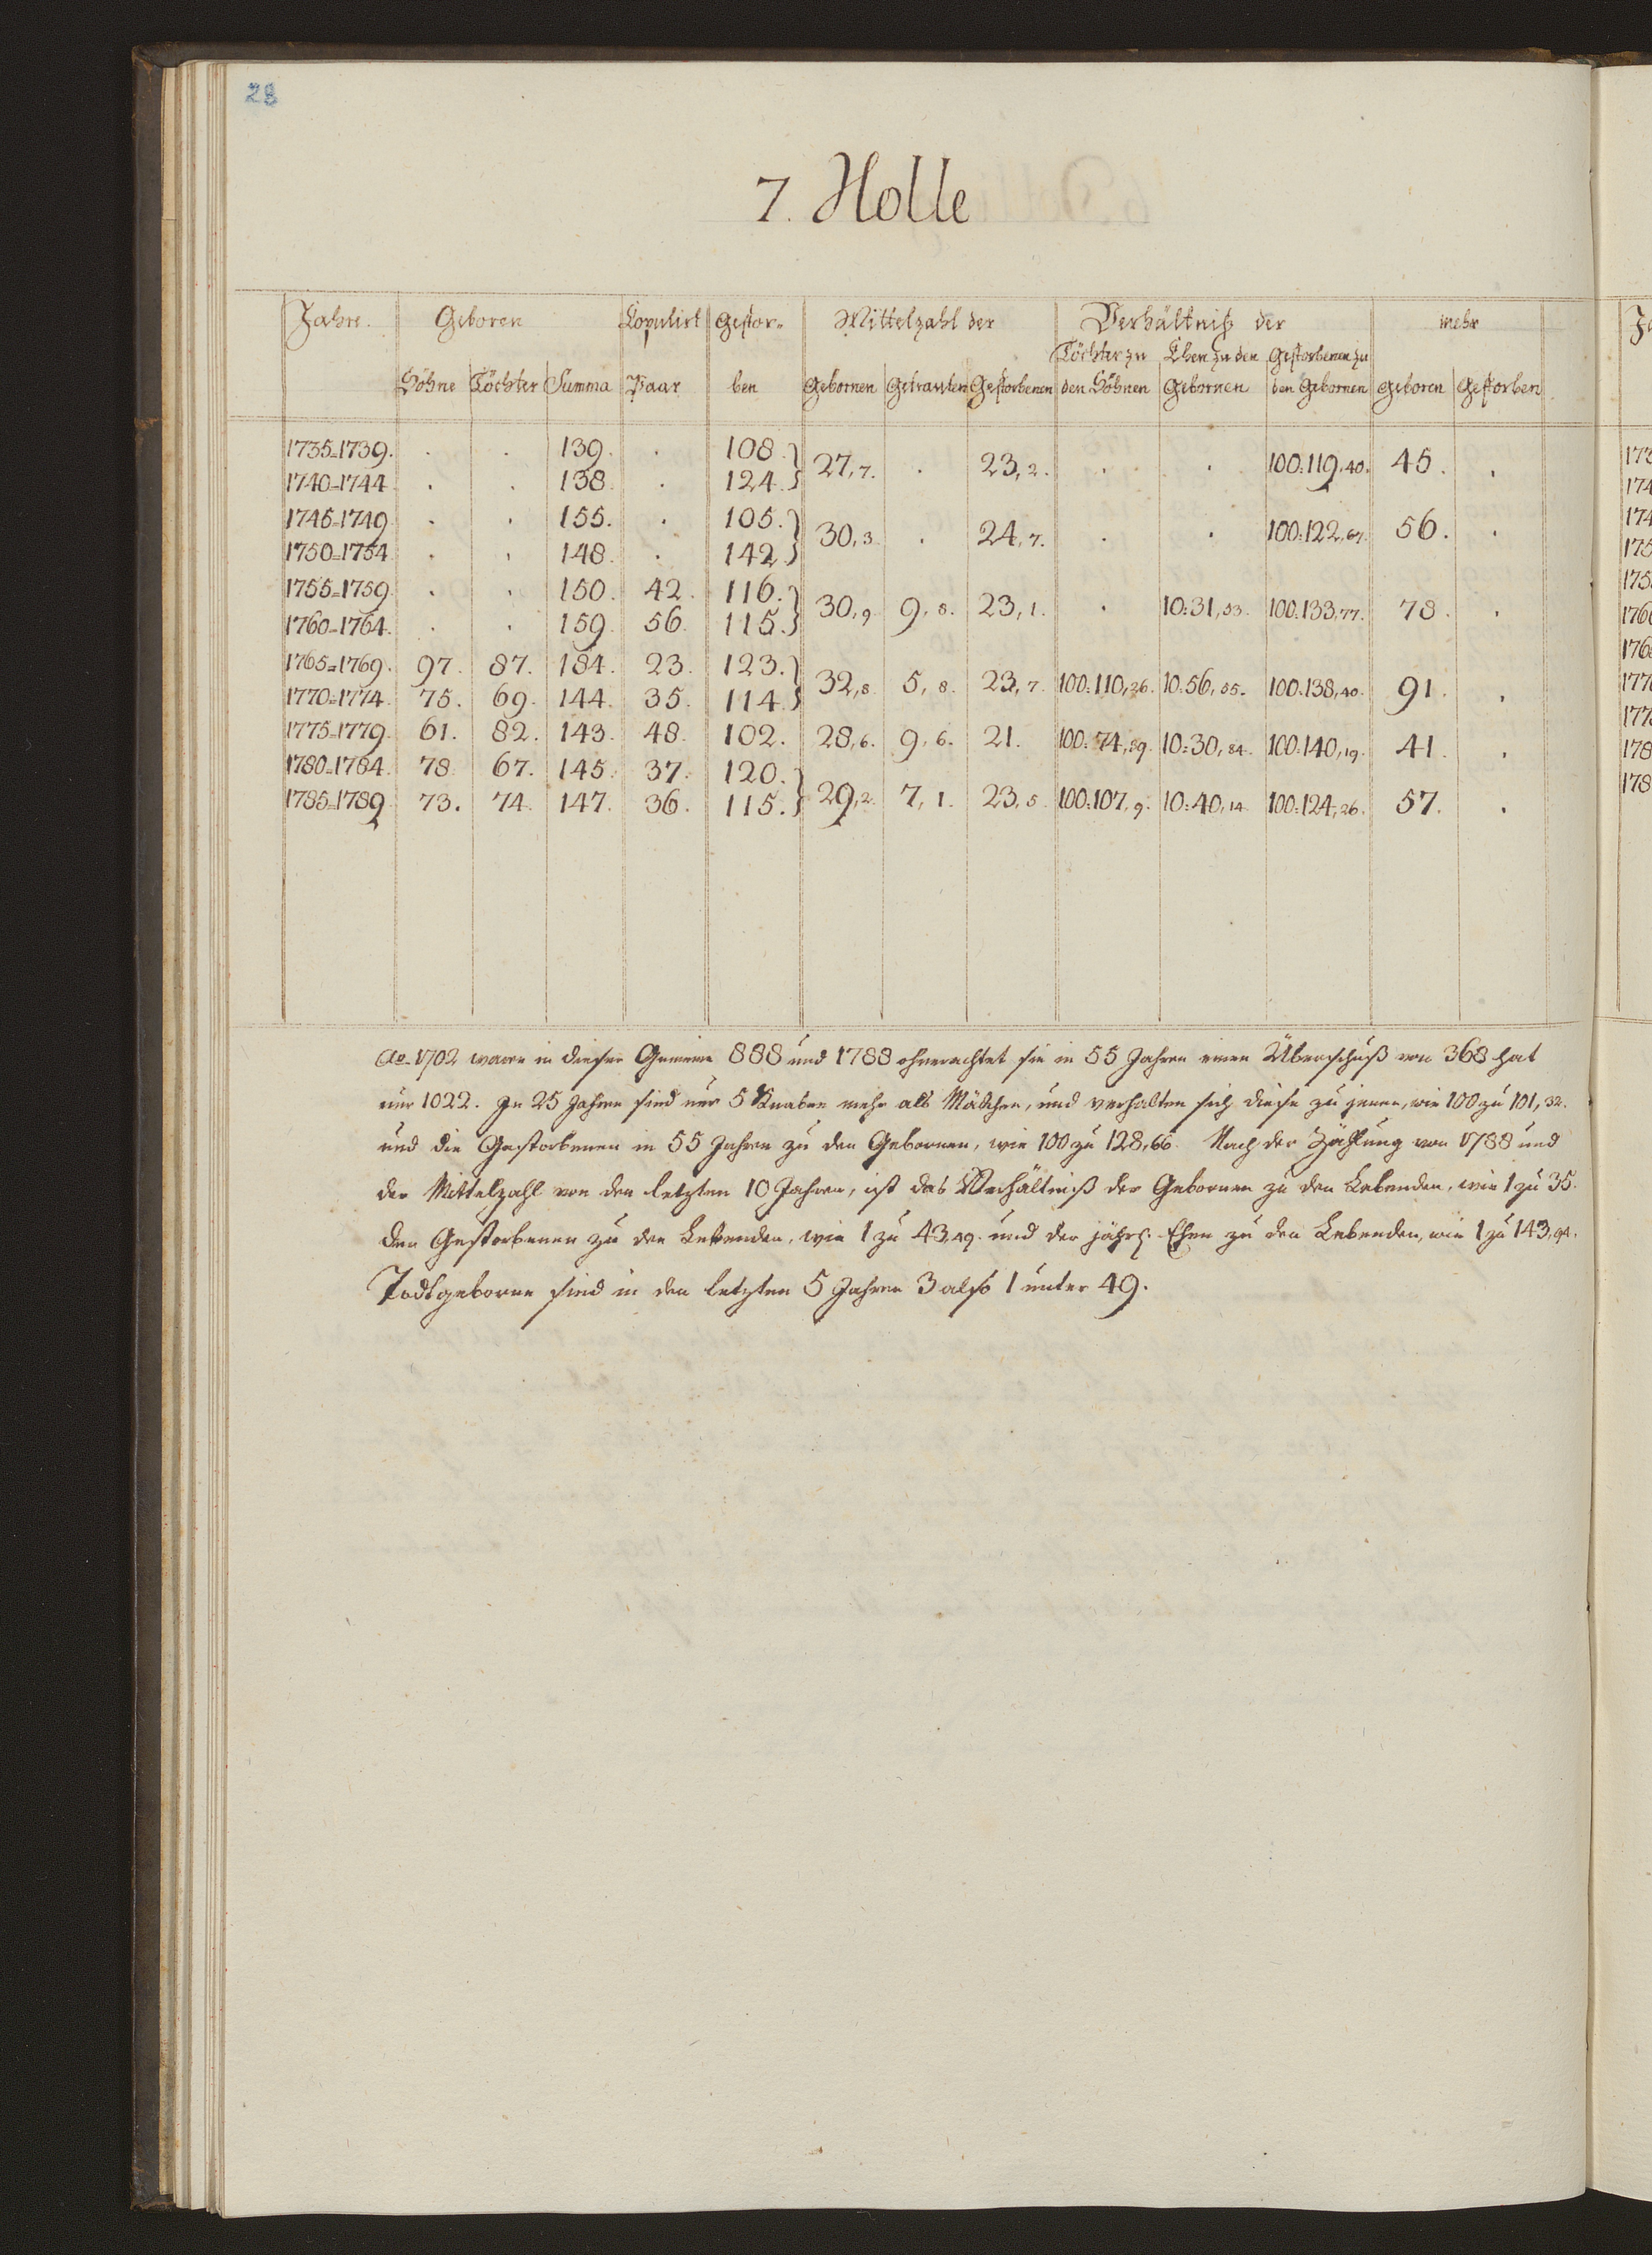 28
7. Holle
Jahre. Geboren Kopulirt Gestor= Mittelzahl der Verhältniß der mehr
Töchter zu Ehen zu den Gestorbenen zu
Söhne Töchter Summa Paar ben Gebornen Getrauten Gestorbenen den Söhnen Gebornen den Gebornen geboren gestorben
1735=1739. . . 139. . 108.
27,7. . 23,2. . . 100:119,40. 45. .
1740=1744. . . 138. . 124.
1745=1749. . . 155. . 105.
30,3. . 24,7. . . 100:122,67. 56. .
1750=1754. . . 148. . 142.
1755=1759. . . 150. 42. 116.
30,9. 9,8. 23,1. . 10:31,53. 100:133,77. 78. .
1760=1764. . . 159. 56. 115.
1765=1769. 97. 87. 184. 23. 123.
32,8. 5,8. 23,7. 100:110,26. 10:56,55. 100:138,40. 91. .
1770=1774. 75. 69. 144. 35. 114.
1775=1779. 61. 82. 143. 48. 102. 28,6. 9,6. 21. 100:74,39. 10:30,84. 100:140,19. 41. .
1780=1784. 78. 67. 145. 37. 120.
29,2. 7,1. 23,5. 100:107,9. 10:40,14. 100:124,26. 57. .
1785=1789. 73. 74. 147. 36. 115.
Ao. 1702 waren in dieser Gemeine 888 und 1788 ohnerachtet sie in 55 Jahren einen Überschuß von 368 hat
nur 1022. In 25 Jahren sind nur 5 Knaben mehr als Mädchen, und verhalten sich diese zu jenen, wie 100 zu 101,32.
und die Gestorbenen in 55 Jahren zu den Gebornen, wie 100 zu 128,66. Nach der Zählung von 1788 und
der Mittelzahl von den letzten 10 Jahren, ist das Verhältniß der Gebornen zu den Lebenden, wie 1 zu 35.
den Gestorbenen zu den Lebenden, wie 1 zu 43,49. und der jährl. Ehen zu den Lebenden, wie 1 zu 143,94.
Todtgeborne sind in den letzten 5 Jahren 3 also 1 unter 49.